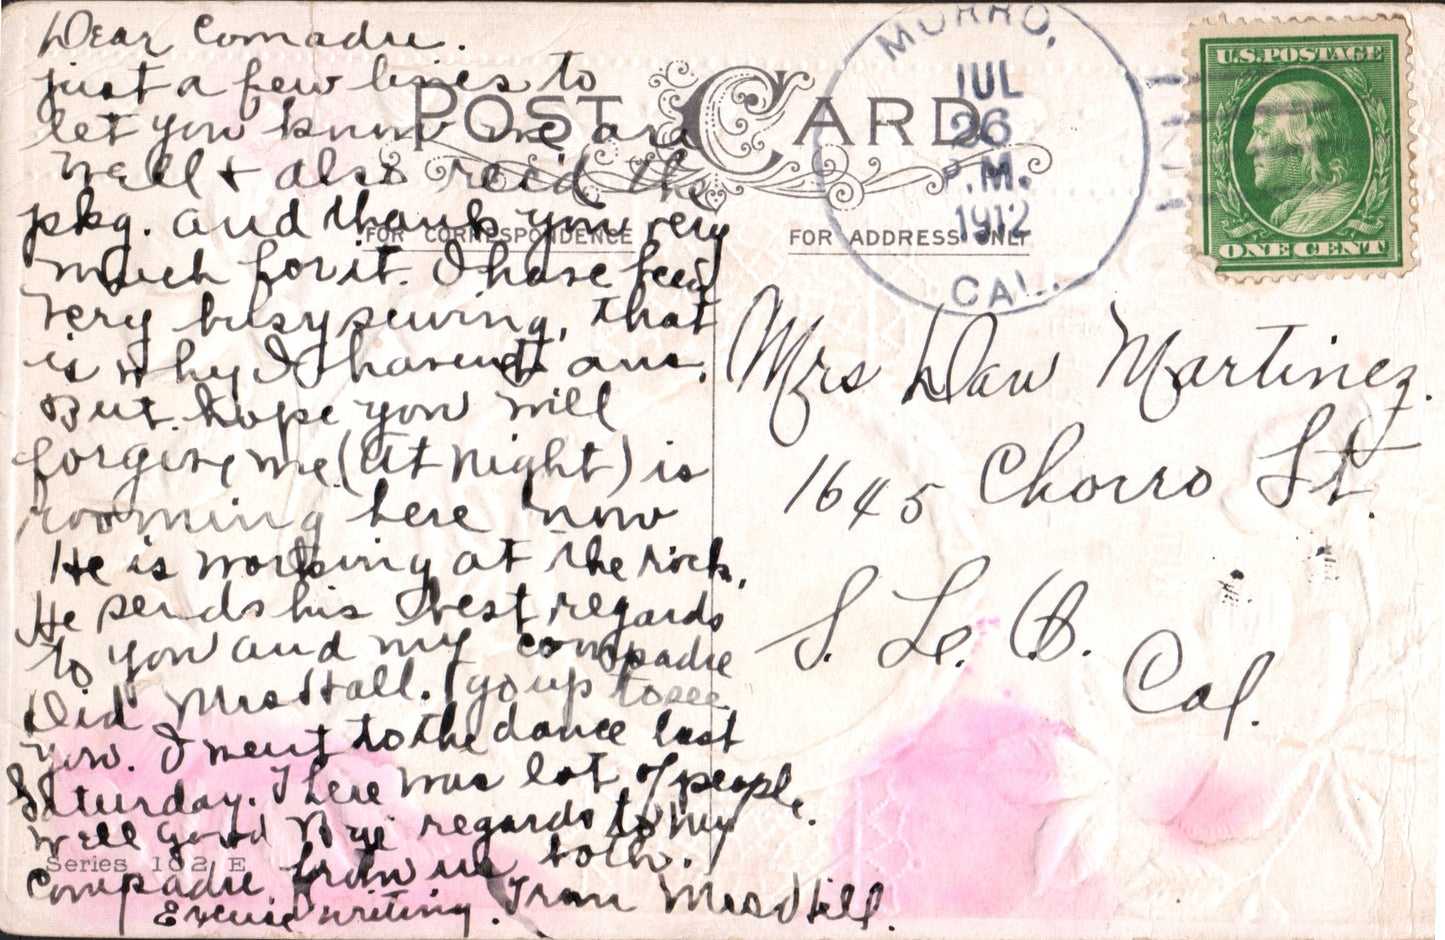 Dear Comadre.
just a few lines to
let you know we are
well & also rec'd the
pkg. and thank you very
much for it. I have been
very busy sewing, that
is why I havent ans.
But hope you will
forgive me (at night) is
rooming here now
He is working at the rock.
He sends his best regards
to you and my compadre
Did Mrs Hall. go up to see
you. I went to the dance last
Saturday. There was lot of people.
Well Good Bye regards to my
compadre from us both.
Excuse writing. From Mrs Hill.
POST CARD
FOR CORRESPONDENCE
FOR ADDRESS ONLY
Series 102 E
MORRO,
JUL
26
P.M.
1912
CAL.
U.S. POSTAGE
ONE CENT
Mrs Dan Martinez.
1645 Chorro St.
S. L. O.
Cal.